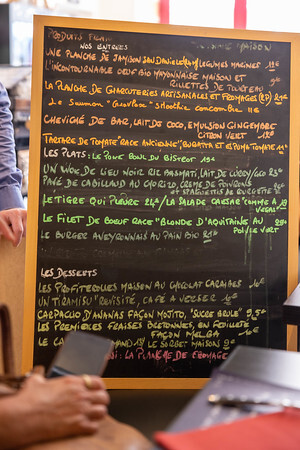 PRODUITS FRAIS MAISON
NOS ENTRÉES
UNE PLANCHE DE JAMBON SAN DANIELE LÉGUMES MARINÉS
L'INCONTOURNABLE OEUF BIO MAYONNAISE MAISON ET
RILLETTES DE TOURTEAU 9€
LA PLANCHE DE CHARCUTERIES ARTISANALES ET FROMAGES
LE SAUMON SMOOTHIE CONCOMBRE 11€
CEVICHE DE BAR, LAIT DE COCO, EMULSION GINGEMBRE
CITRON VERT
TARTARE DE TOMATE "RACE ANCIENNE", BURRATA ET TOMATE 11€
LES PLATS: LE POKE BOWL DU BISTROT 19€
UN WOK DE LIEU NOIR, RIZ BASMATI, LAIT DE COCO
PAVÉ DE CABILLAUD AU CHORIZO, CRÈME DE POIVRONS
ET SPAGHETTIS DE COURGETTE
LE TIGRE QUI PLEURE 24€/LA SALADE CAESAR "COMME À
LE FILET DE BOEUF RACE "BLONDE D'AQUITAINE" AU
POIVRE VERT
LE BURGER AVEYRONNAIS AU PAIN BIO
LES DESSERTS
LES PROFITEROLES MAISON AU CHOCOLAT CARAÏBES 10€
UN TIRAMISU "REVISITÉ", CAFÉ À VERSER 10€
CARPACCIO D'ANANAS FAÇON MOJITO, "SUCRE BRULÉ" 9,5€
LES PREMIÈRES FRAISES BRETONNES, EN FEUILLETÉ
FAÇON MELBA 10€
LE SORBET MAISON
LA PLANCHE DE FROMAGE